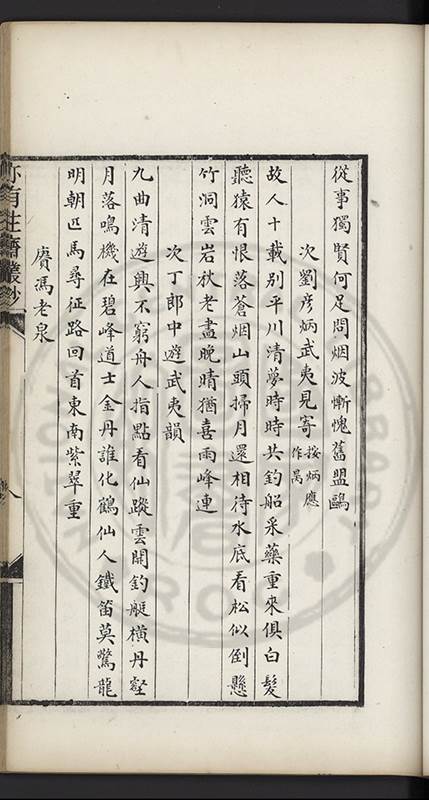 從事獨賢何足問烟波慚愧舊盟鷗
次劉彥炳武夷見寄 按炳應作昺
故人十載別平川清夢時時共釣船采藥重來俱白髮
聽猿有恨落蒼烟山頭掃月還相待水底看松似倒懸
竹洞雲岩秋老盡晚晴猶喜兩峰連
次丁郎中遊武夷韻
九曲清遊興不窮舟人指點看仙蹤雲開釣艇橫丹壑
月落鳴機在碧峰道士金丹誰化鶴仙人鐵笛莫驚龍
明朝匹馬尋征路回首東南紫翠重
賡馮老泉